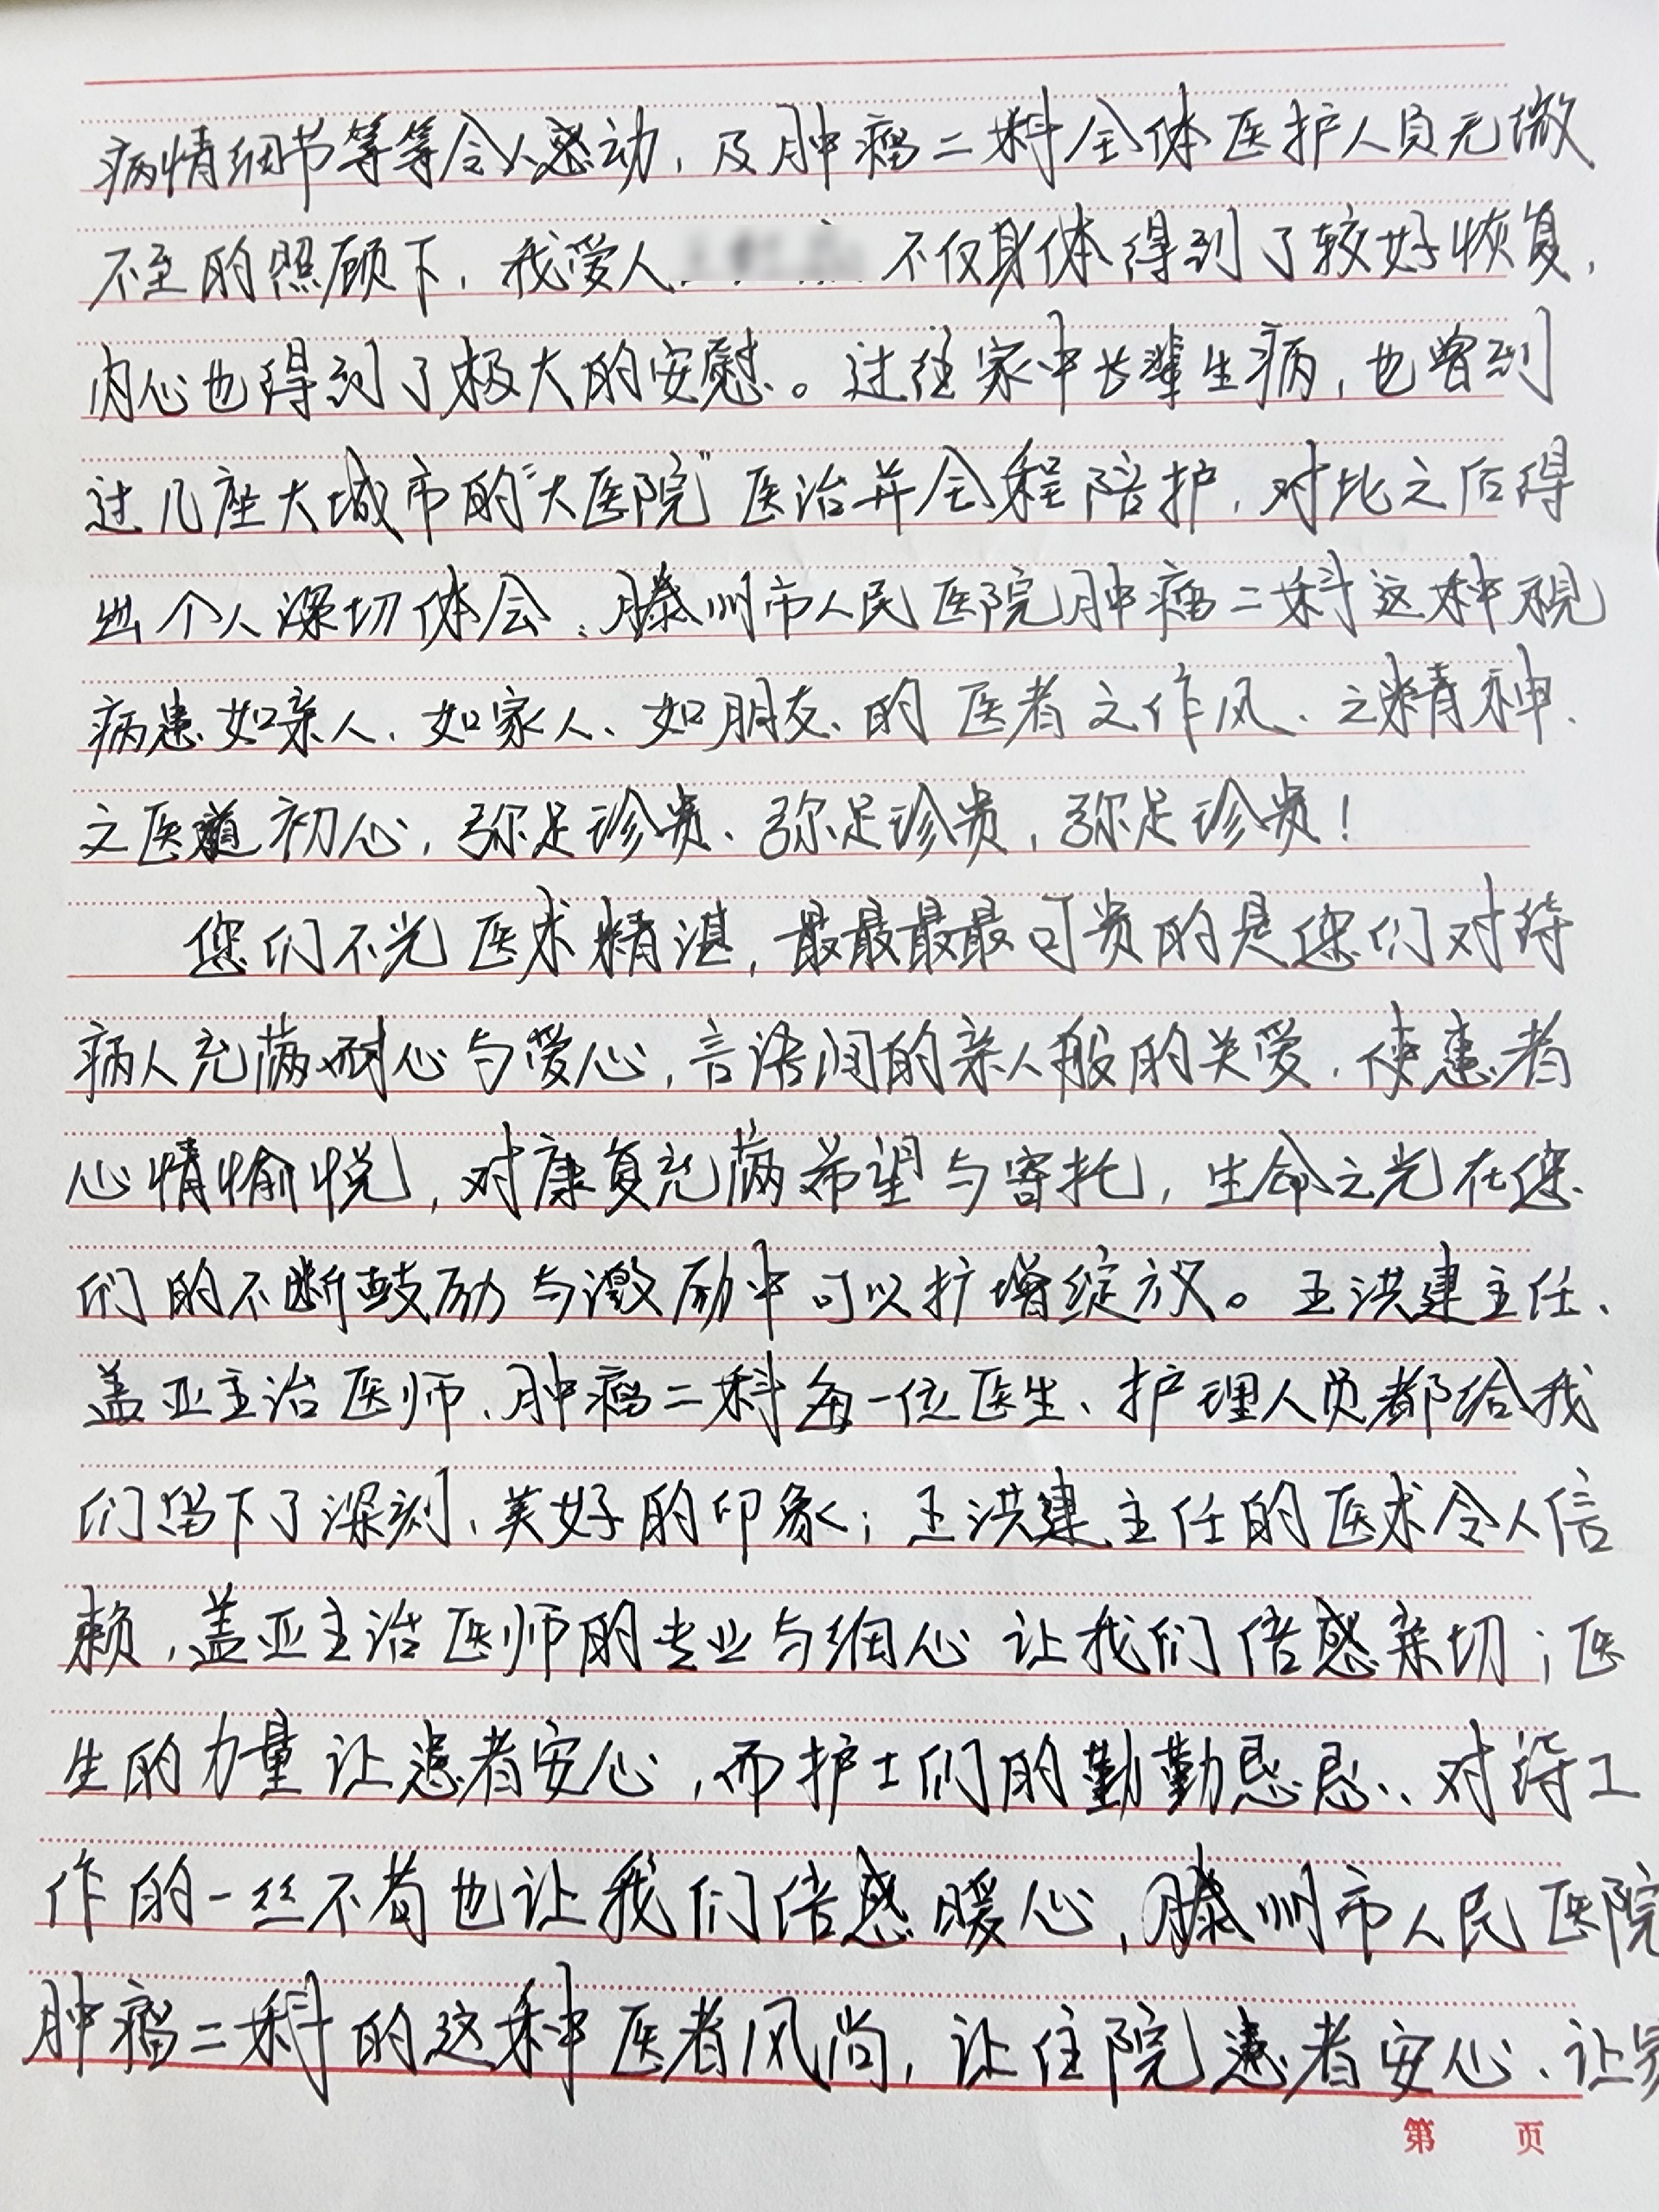 病情细节等等令人感动，及肿瘤二科全体医护人员无微
不至的照顾下，我爱人 不仅身体得到了较好恢复，
内心也得到了极大的安慰。过往家中长辈生病，也曾到
过几座大城市的“大医院”医治并全程陪护，对比之后得
出个人深切体会：滕州市人民医院肿瘤二科这种视
病患如亲人、如家人、如朋友、的医者之作风、之精神、
之医道初心，弥足珍贵、弥足珍贵，弥足珍贵！
您们不光医术精湛，最最最最可贵的是您们对待
病人充满耐心与爱心，言语间的亲人般的关爱，使患者
心情愉悦，对康复充满希望与寄托，生命之光在您
们的不断鼓励与激励中可以扩增绽放。王洪建主任、
盖亚主治医师、肿瘤二科每一位医生、护理人员都给我
们留下了深刻、美好的印象；王洪建主任的医术令人信
赖，盖亚主治医师的专业与细心让我们倍感亲切；医
生的力量让患者安心，而护士们的勤勤恳恳、对待工
作的一丝不苟也让我们倍感暖心，滕州市人民医院
肿瘤二科的这种医者风尚，让住院患者安心、让家
第 页